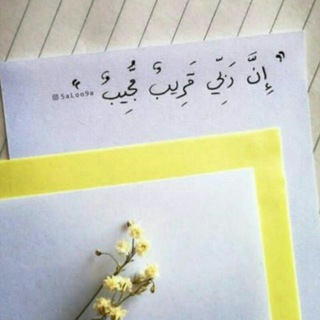 " إِنَّ رَبِّي قَرِيبٌ مُّجِيبٌ "
5aLoo9a